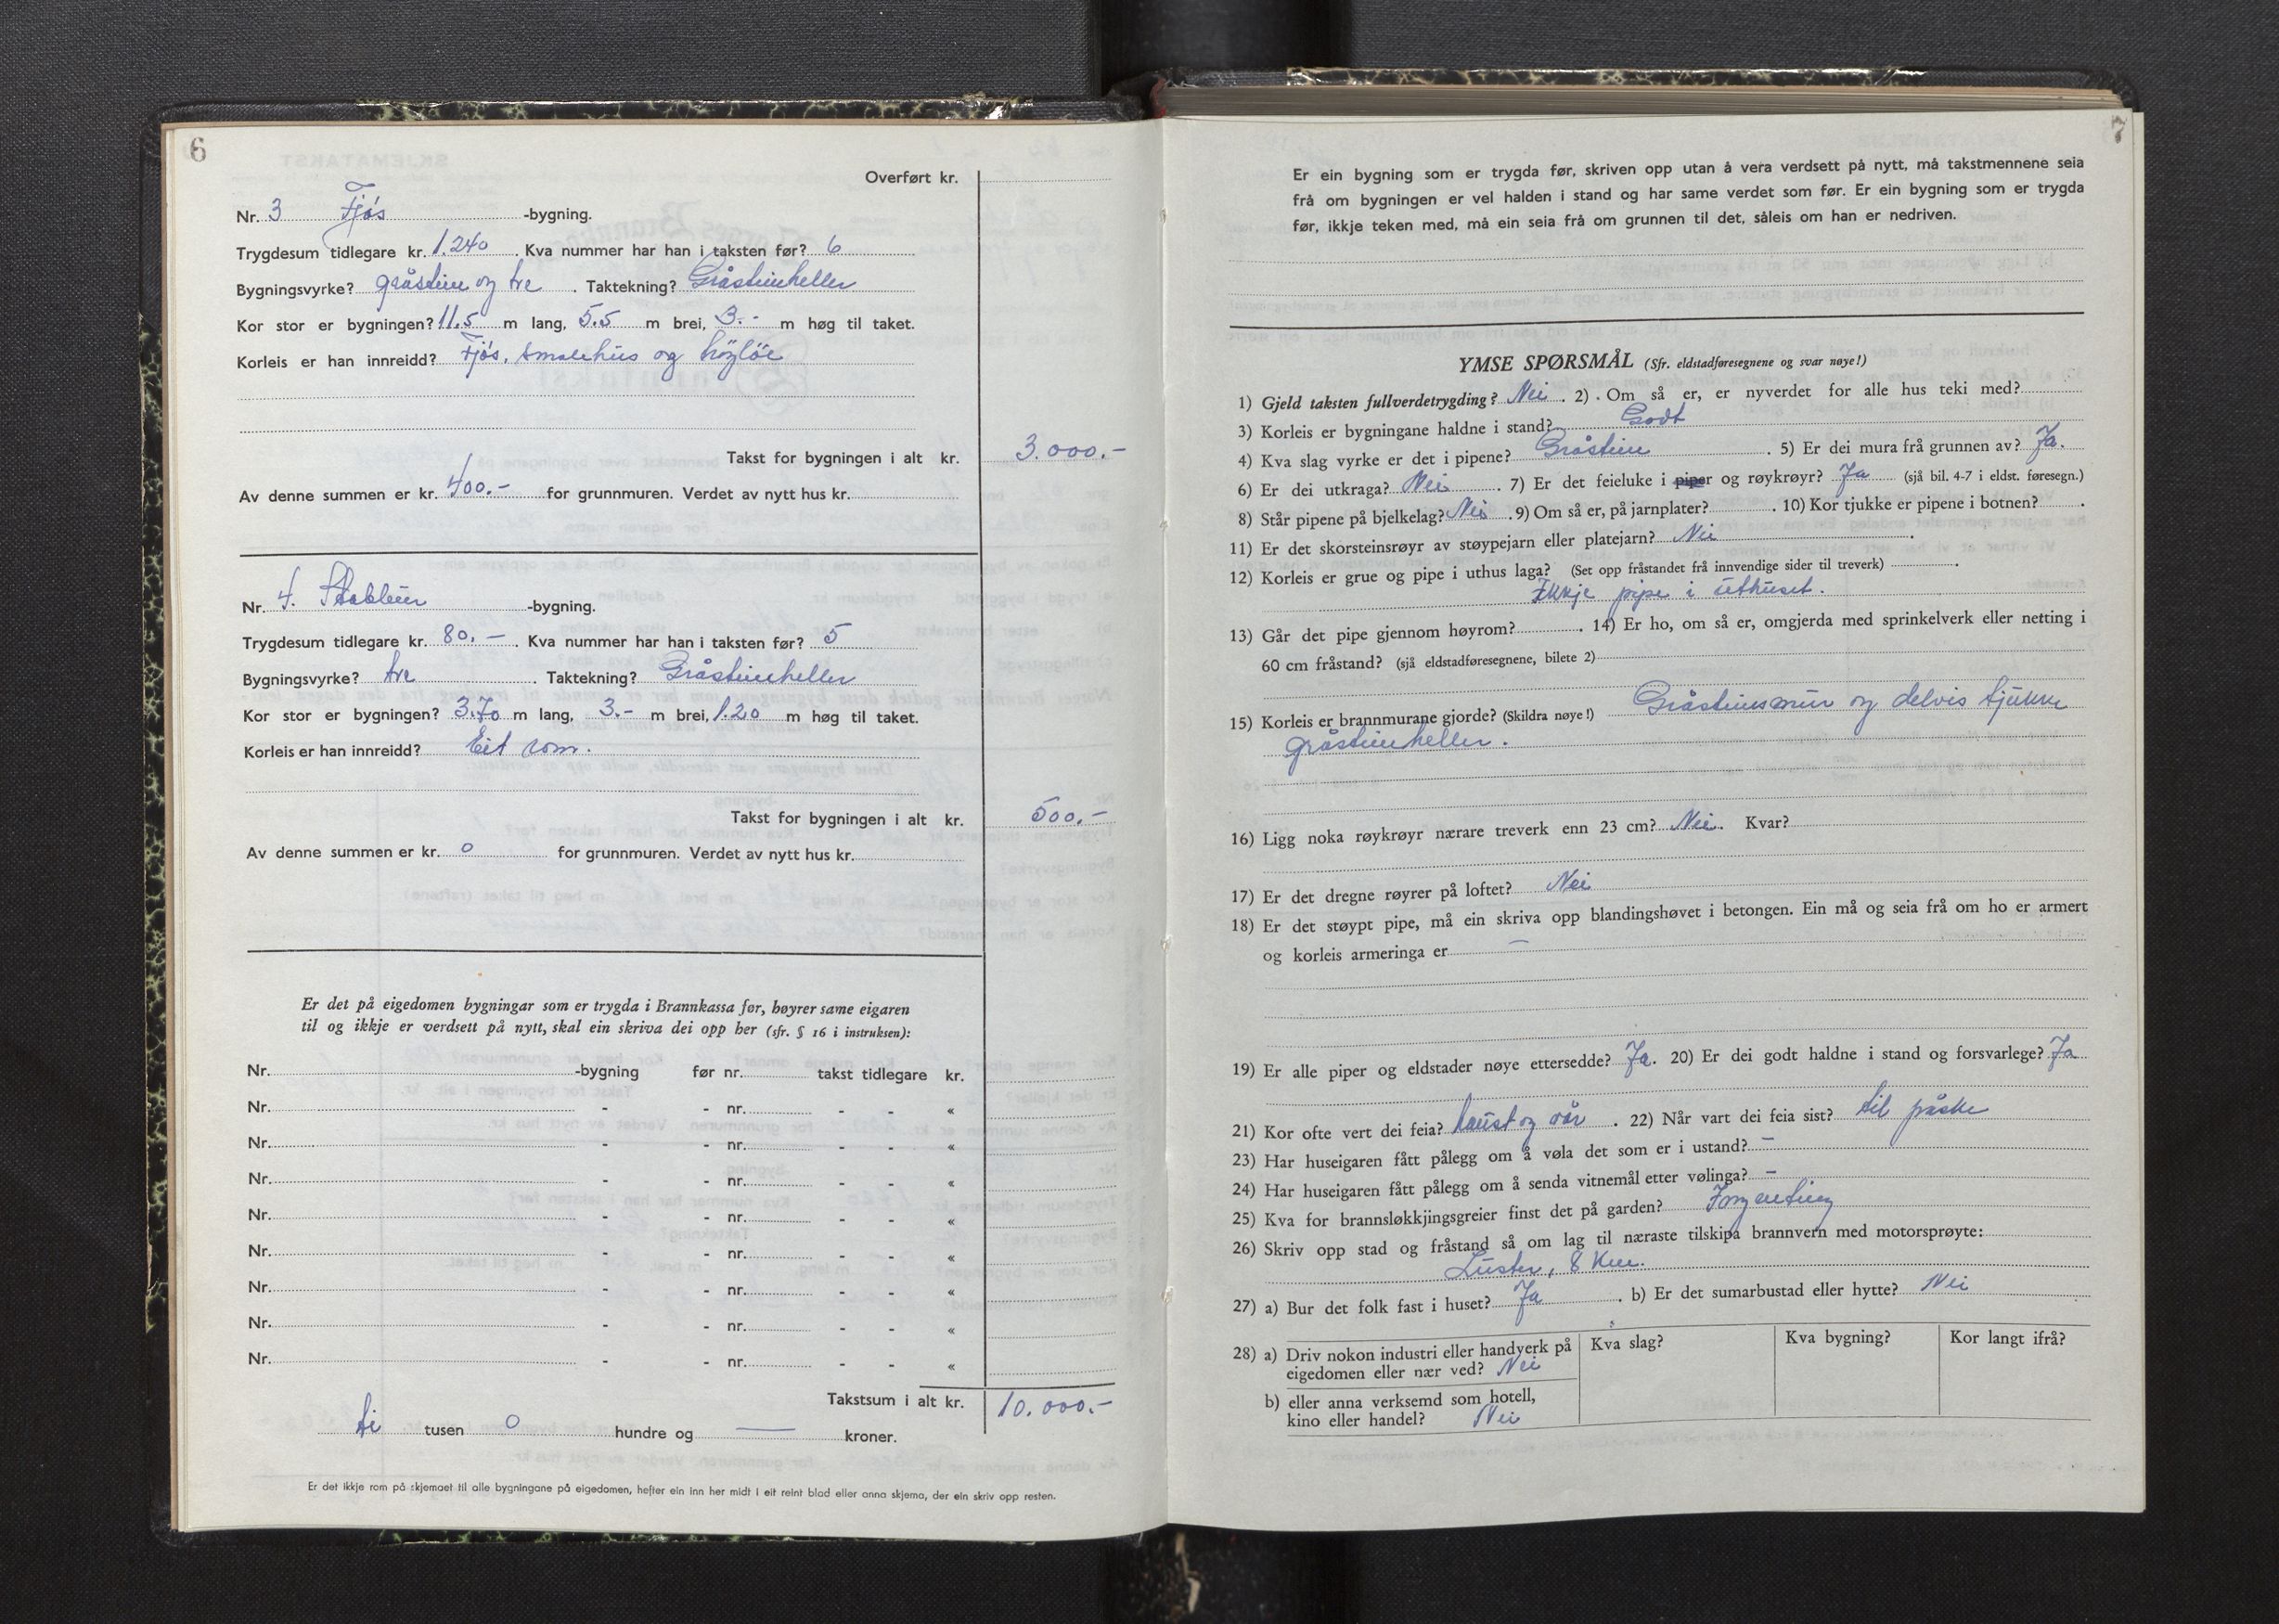 6
Overført kr.
Nr. 3 Fjøs -bygning.
Trygdesum tidlegare kr. 1.240 . Kva nummer har han i taksten før? 6
Bygningsvyrke? gråstein og tre . Taktekning? Gråsteinheller
Kor stor er bygningen? 11.5 m lang, 5.5 m brei, 3.- m høg til taket.
Korleis er han innreidd? Fjøs, smalehus og höyløe
Takst for bygningen i alt kr. 3.000.-
Av denne summen er kr. 400.- for grunnmuren. Verdet av nytt hus kr.
Nr. 4. Stabbur -bygning.
Trygdesum tidlegare kr. 80.- . Kva nummer har han i taksten før? 5
Bygningsvyrke? tre . Taktekning? Gråsteinheller
Kor stor er bygningen? 3.70 m lang, 3.- m brei, 1.20 m høg til taket.
Korleis er han innreidd? Eit rom.
Takst for bygningen i alt kr. 500.-
Av denne summen er kr. 0 for grunnmuren. Verdet av nytt hus kr.
Er det på eigedomen bygningar som er trygda i Brannkassa før, høyrer same eigaren
til og ikkje er verdsett på nytt, skal ein skriva dei opp her (sfr. § 16 i instruksen):
Nr. -bygning før nr. takst tidlegare kr.
Nr. - - nr. - - «
Nr. - - nr. - - «
Nr. - - nr. - - «
Nr. - - nr. - - «
Nr. - - nr. - - «
Nr. - - nr. - - «
Nr. - - nr. - - «
Nr. - - nr. - - «
Takstsum i alt kr. 10.000.-
ti tusen 0 hundre og — kroner.
Er det ikkje rom på skjemaet til alle bygningane på eigedomen, hefter ein inn her midt i eit reint blad eller anna skjema, der ein skriv opp resten.
7
Er ein bygning som er trygda før, skriven opp utan å vera verdsett på nytt, må takstmennene seia
frå om bygningen er vel halden i stand og har same verdet som før. Er ein bygning som er trygda
før, ikkje teken med, må ein seia frå om grunnen til det, såleis om han er nedriven.
YMSE SPØRSMÅL (Sfr. eldstadføresegnene og svar nøye!)
1) Gjeld taksten fullverdetrygding? Nei . 2) . Om så er, er nyverdet for alle hus teki med?
3) Korleis er bygningane haldne i stand? Godt
4) Kva slag vyrke er det i pipene? Gråstein . 5) Er dei mura frå grunnen av? Ja.
6) Er dei utkraga? Nei . 7) Er det feieluke i piper og røykrøyr? Ja (sjå bil. 4-7 i eldst. føresegn.)
8) Står pipene på bjelkelag? Nei . 9) Om så er, på jarnplater? . 10) Kor tjukke er pipene i botnen? .
11) Er det skorsteinsrøyr av støypejarn eller platejarn? Nei .
12) Korleis er grue og pipe i uthus laga? (Set opp fråstandet frå innvendige sider til treverk) .
Ikkje pipe i uthuset.
13) Går det pipe gjennom høyrom? . 14) Er ho, om så er, omgjerda med sprinkelverk eller netting i
60 cm fråstand? (sjå eldstadføresegnene, bilete 2)
15) Korleis er brannmurane gjorde? (Skildra nøye!) Gråsteinsmur og delvis tjukke
gråsteinheller.
16) Ligg noka røykrøyr nærare treverk enn 23 cm? Nei. Kvar?
17) Er det dregne røyrer på loftet? Nei
18) Er det støypt pipe, må ein skriva opp blandingshøvet i betongen. Ein må og seia frå om ho er armert
og korleis armeringa er —
19) Er alle piper og eldstader nøye ettersedde? Ja. 20) Er dei godt haldne i stand og forsvarlege? Ja
21) Kor ofte vert dei feia? haust og vår . 22) Når vart dei feia sist? til påske
23) Har huseigaren fått pålegg om å vøla det som er i ustand? —
24) Har huseigaren fått pålegg om å senda vitnemål etter vølinga? —
25) Kva for brannsløkkjingsgreier finst det på garden?
26) Skriv opp stad og fråstand så om lag til næraste tilskipa brannvern med motorsprøyte:
Luster, 8 km.
27) a) Bur det folk fast i huset? Ja . b) Er det sumarbustad eller hytte? Nei
28) a) Driv nokon industri eller handverk på eigedomen eller nær ved? Nei
Kva slag? Kva bygning? Kor langt ifrå?
b) eller anna verksemd som hotell,
kino eller handel? Nei